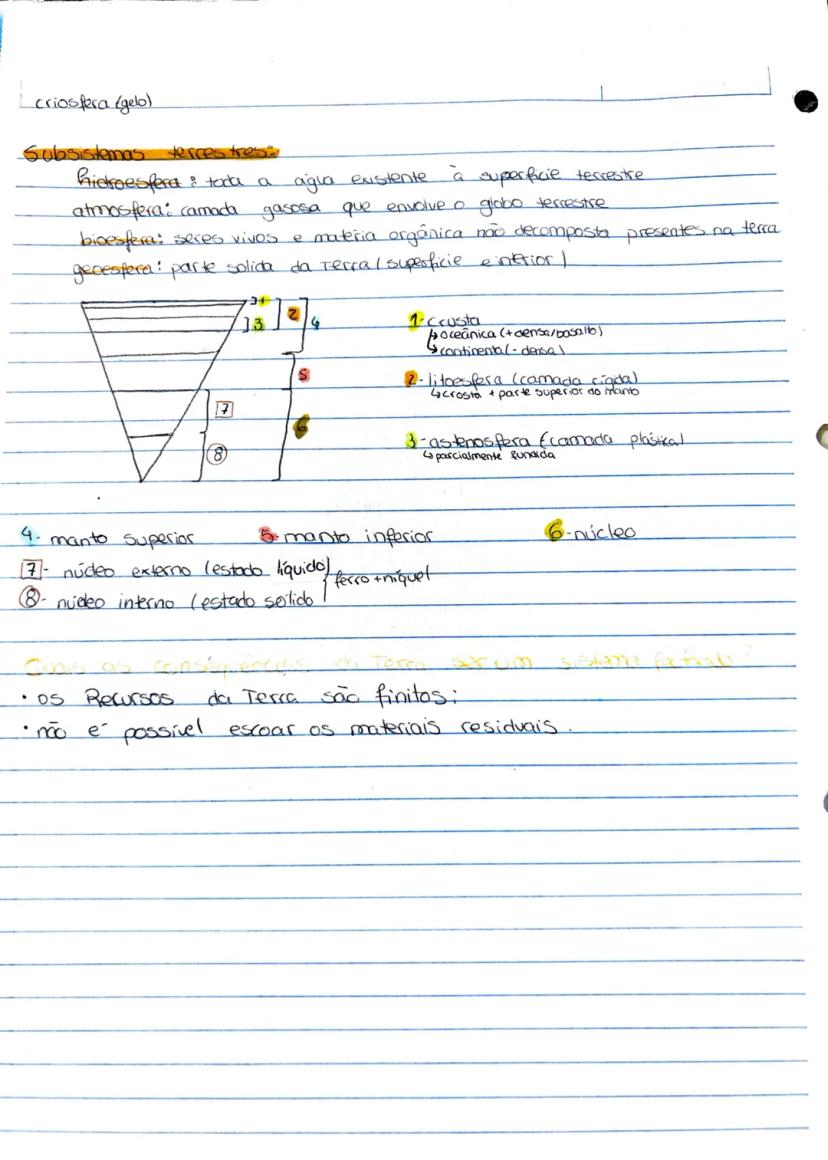 criosfera (gelo)
Subsistemas terrestres:
hidroesfera: toda a água existente à superficie terrestre
atmosfera: camada gasosa que envolve o globo terrestre
bioesfera: seres vivos e matéria orgânica não decomposta presentes na terra
geoesfera: parte solida da Terra (superficie e interior)
1
2
3
4
5
6
7
8
1- crusta
↳ oceânica (+ densa/basalto)
↳ continental (- densa)
2- litoesfera (camada rigida)
↳ crosta + parte superior do manto
3- astenosfera (camada plástica)
↳ parcialmente fundida
4- manto superior 5- manto inferior 6- núcleo
7- núcleo externo (estado líquido)
8- núcleo interno (estado sólido
} ferro + níquel
Quais as consequências da Terra ser um sistema fechado?
• os Recursos da Terra são finitos;
• não é possivel escoar os materiais residuais.